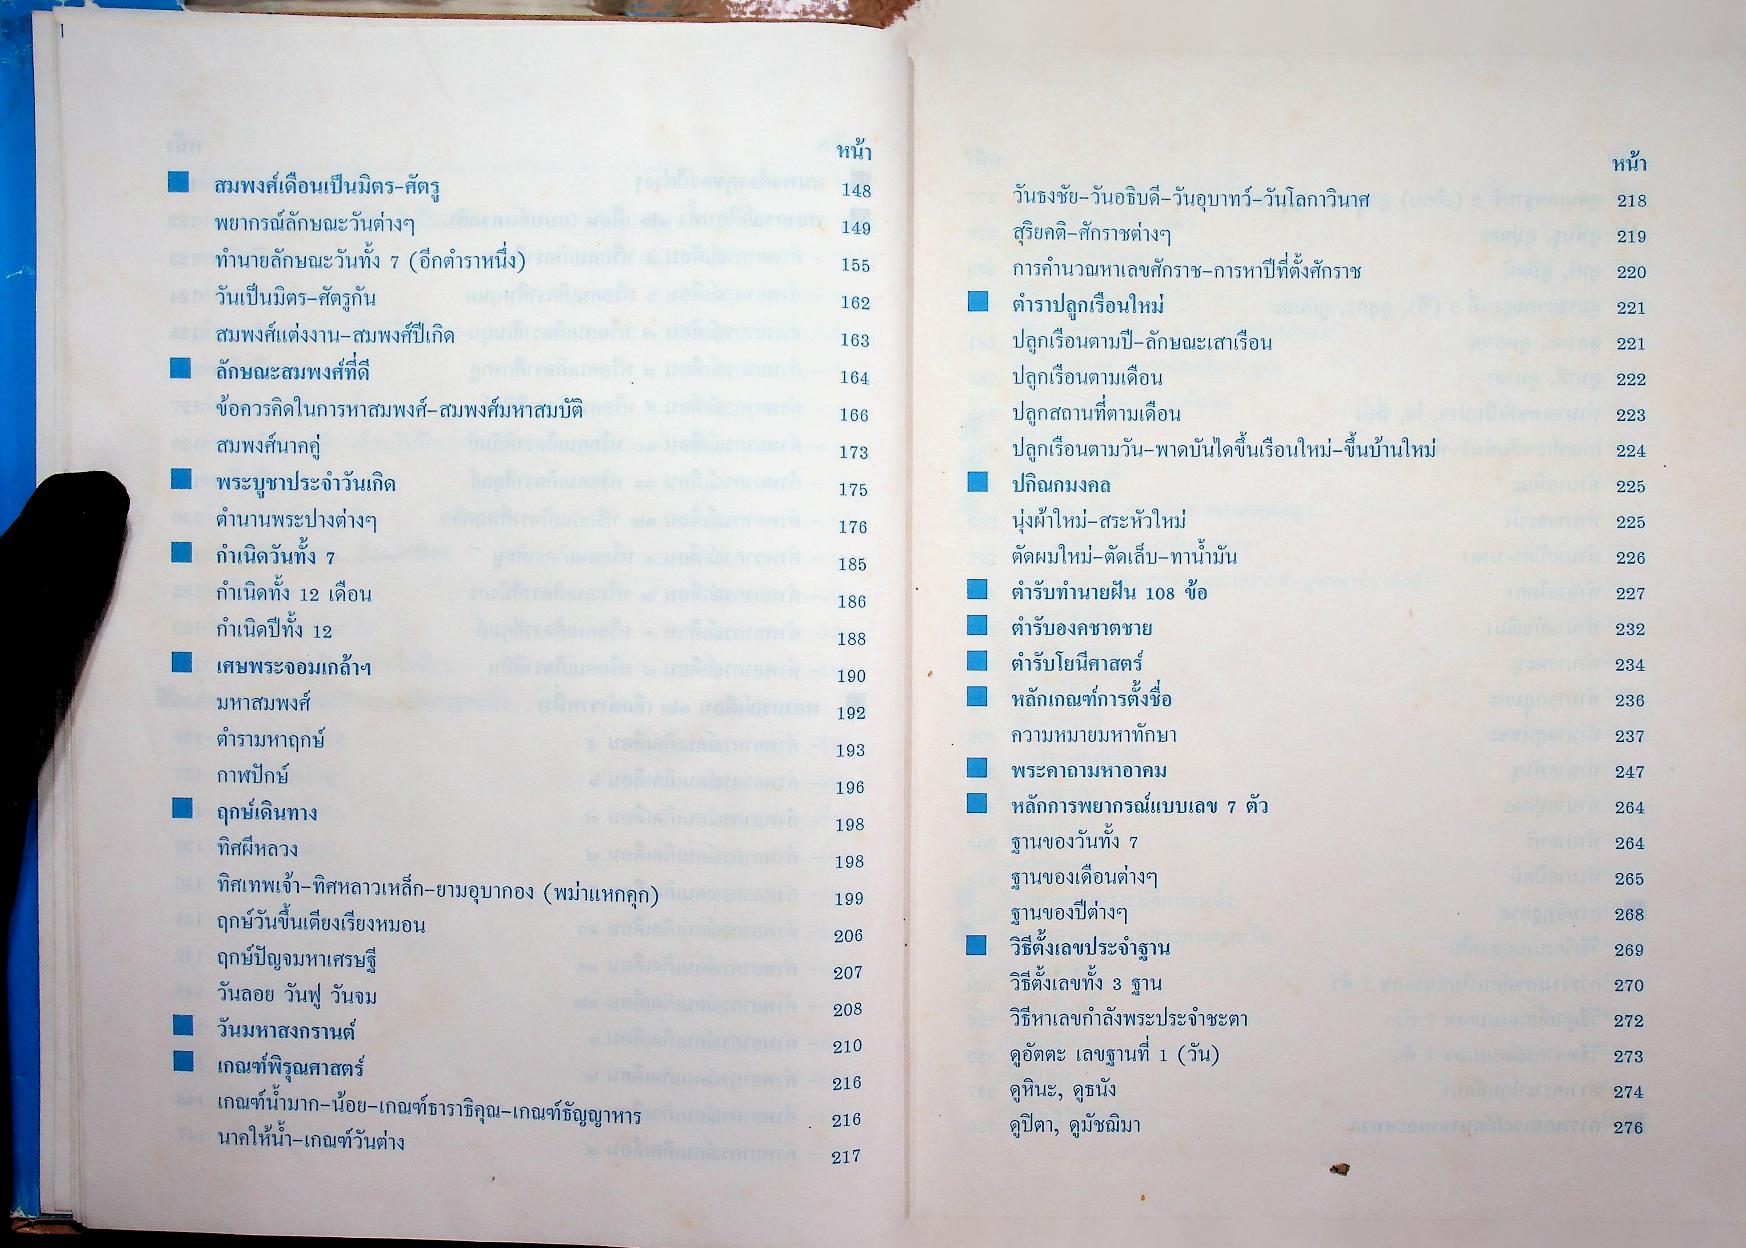 หน้า
สมพงศ์เดือนเป็นมิตร-ศัตรู 148
พยากรณ์ลักษณะวันต่างๆ 149
ทำนายลักษณะวันทั้ง 7 (อีกตำราหนึ่ง) 155
วันเป็นมิตร-ศัตรูกัน 162
สมพงศ์แต่งงาน-สมพงศ์ปีเกิด 163
ลักษณะสมพงศ์ที่ดี 164
ข้อควรคิดในการหาสมพงศ์-สมพงศ์มหาสมบัติ 166
สมพงศ์นาคคู่ 173
พระบูชาประจำวันเกิด 175
ตำนานพระปางต่างๆ 176
กำเนิดวันทั้ง 7 185
กำเนิดทั้ง 12 เดือน 186
กำเนิดปีทั้ง 12 188
เศษพระจอมเกล้าฯ 190
มหาสมพงศ์ 192
ตำรามหาฤกษ์ 193
กาฬปักษ์ 196
ฤกษ์เดินทาง 198
ทิศผีหลวง 198
ทิศเทพเจ้า-ทิศหลาวเหล็ก-ยามอุบากอง (พม่าแหกคุก) 199
ฤกษ์วันขึ้นเตียงเรียงหมอน 206
ฤกษ์ปัญจมหาเศรษฐี 207
วันลอย วันฟู วันจม 208
วันมหาสงกรานต์ 210
เกณฑ์พิรุณศาสตร์ 216
เกณฑ์น้ำมาก-น้อย-เกณฑ์ธาราธิคุณ-เกณฑ์ธัญญาหาร 216
นาคให้น้ำ-เกณฑ์วันต่าง 217
หน้า
วันธงชัย-วันอธิบดี-วันอุบาทว์-วันโลกาวินาศ 218
สุริยคติ-ศักราชต่างๆ 219
การคำนวณหาเลขศักราช-การหาปีที่ตั้งศักราช 220
ตำราปลูกเรือนใหม่ 221
ปลูกเรือนตามปี-ลักษณะเสาเรือน 221
ปลูกเรือนตามเดือน 222
ปลูกสถานที่ตามเดือน 223
ปลูกเรือนตามวัน-พาดบันไดขึ้นเรือนใหม่-ขึ้นบ้านใหม่ 224
ปกิณกมงคล 225
นุ่งผ้าใหม่-สระหัวใหม่ 225
ตัดผมใหม่-ตัดเล็บ-ทาน้ำมัน 226
ตำรับทำนายฝัน 108 ข้อ 227
ตำรับองคชาตชาย 232
ตำรับโยนีศาสตร์ 234
หลักเกณฑ์การตั้งชื่อ 236
ความหมายมหาทักษา 237
พระคาถามหาอาคม 247
หลักการพยากรณ์แบบเลข 7 ตัว 264
ฐานของวันทั้ง 7 264
ฐานของเดือนต่างๆ 265
ฐานของปีต่างๆ 268
วิธีตั้งเลขประจำฐาน 269
วิธีตั้งเลขทั้ง 3 ฐาน 270
วิธีหาเลขกำลังพระประจำชะตา 272
ดูอัตตะ เลขฐานที่ 1 (วัน) 273
ดูหินะ, ดูธนัง 274
ดูปิตา, ดูมัชฌิมา 276